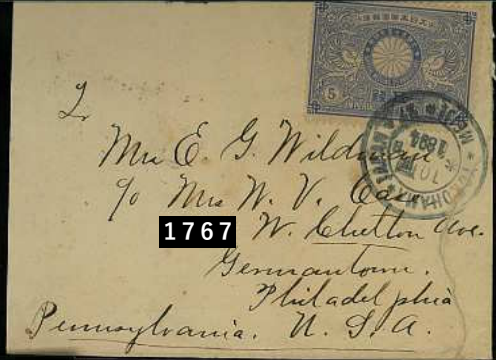 5
YOKOHAMA
1894
To
Mrs E. G. Wildman
c/o Mrs W. V.
1767 W. Chelton Ave.
Germantown.
Philadelphia
Pennsylvania. U. S. A.